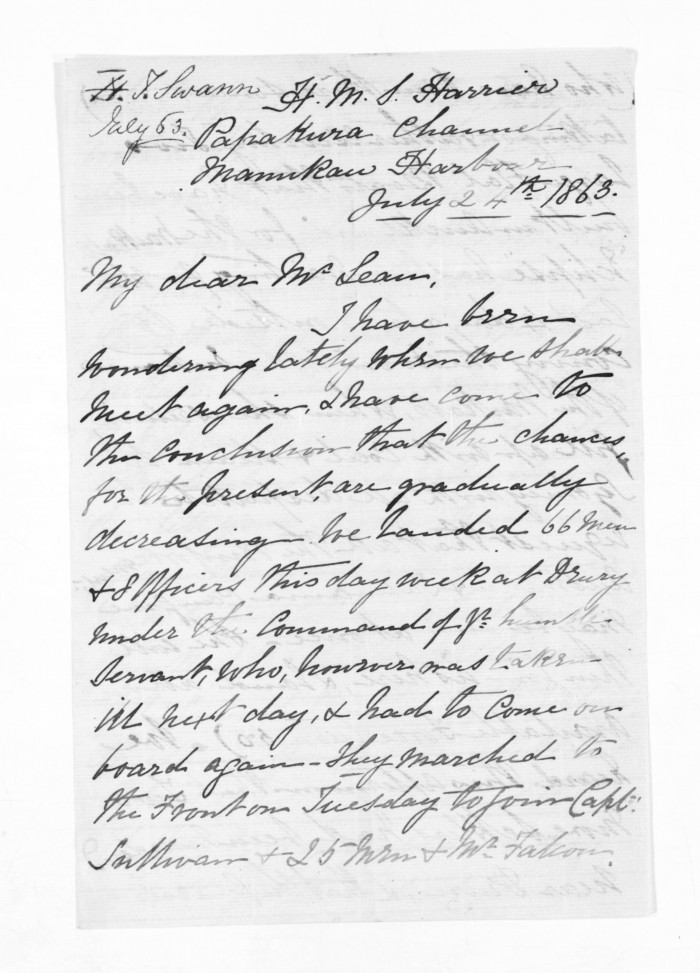 H. T. Swann
July 63.
H. M. S. Harrier
Papakura Channel
Manukau Harbour
July 24th 1863.
My dear Mc Lean,
I have been
wondering lately when we shall
meet again, & have come to
the conclusion that the chances,
for the present, are gradually
decreasing. We landed 66 Men
& 8 Officers this day week at Drury
under the command of yr. humble
Servant, who, however was taken
ill next day, & had to come on
board again - They marched to
the Front on Tuesday to join Capt:
Sullivan & 25 Men & Mr. Falcon.